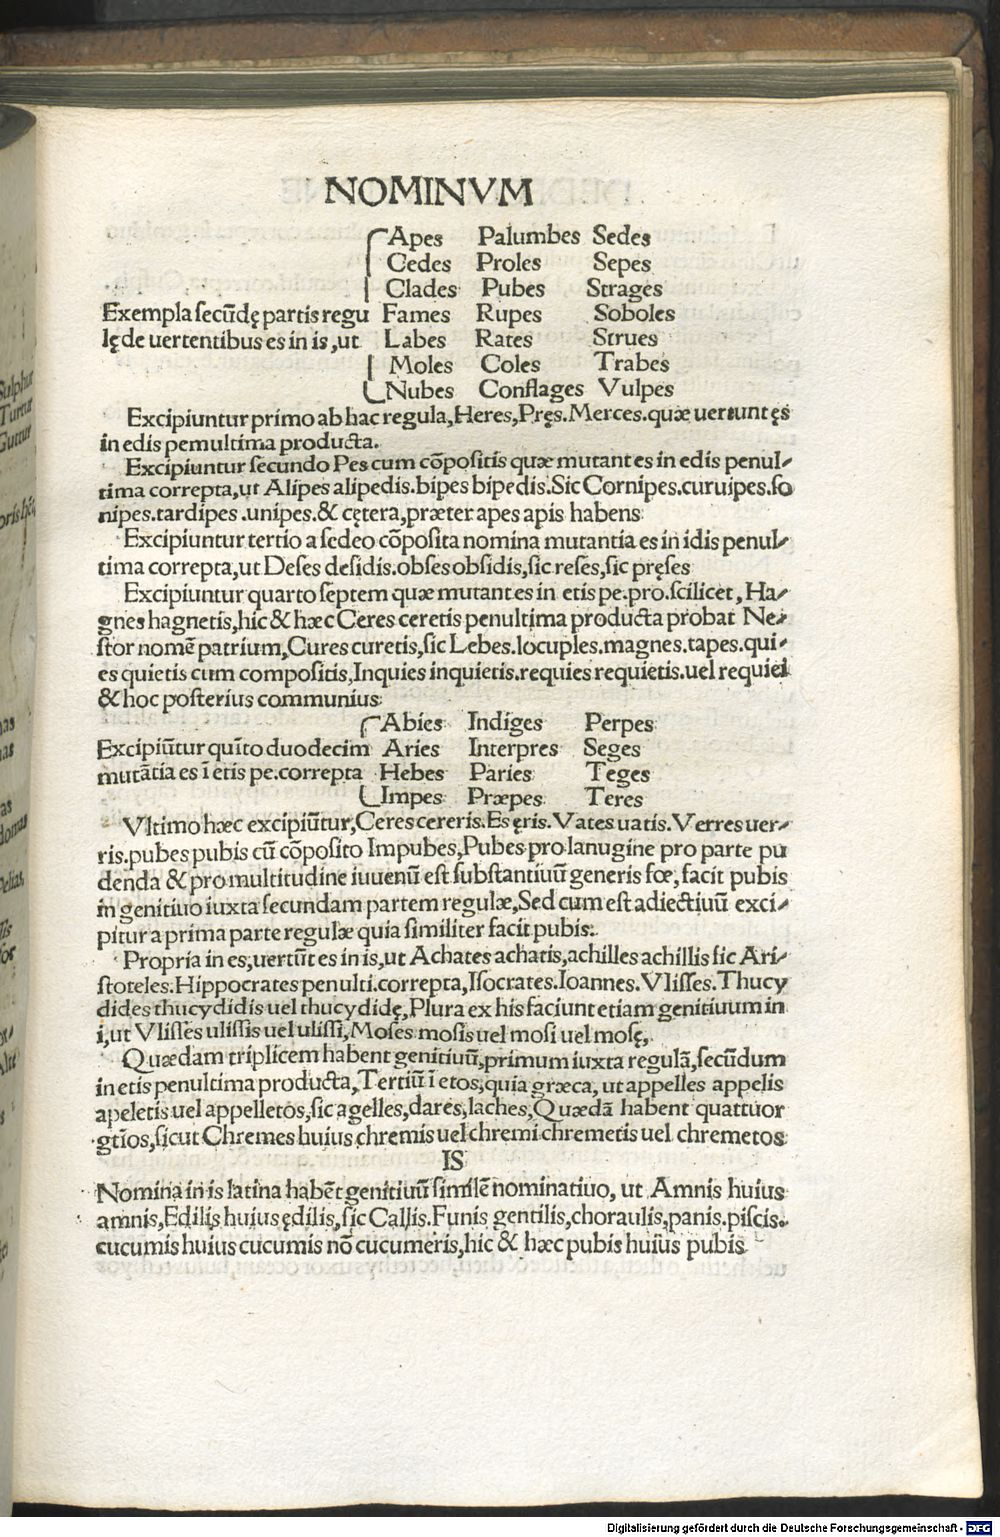 NOMINVM
Apes Palumbes Sedes
Cedes Proles Sepes
Clades Pubes Strages
Exempla secūdę partis regu Fames Rupes Soboles
lę de uertentibus es in is, ut Labes Rates Strues
Moles Coles Trabes
Nubes Conflages Vulpes
Excipiuntur primo ab hac regula, Heres, Pręs. Merces. quæ uertunt ęs
in edis pemultima producta.
Excipiuntur secundo Pes cum cōpositis quæ mutant es in edis penul-
tima correpta, ut Alipes alipedis. bipes bipedis. Sic Cornipes. curuipes. so
nipes. tardipes. unipes. & cętera, præter apes apis habens
Excipiuntur tertio a sedeo cōposita nomina mutantia es in idis penul-
tima correpta, ut Deses desidis. obses obsidis, sic resēs, sic pręses
Excipiuntur quarto septem quæ mutant es in etis pe. pro. scilicet, Ha-
gnes hagnetis, hic & hæc Ceres ceretis penultima producta probat Ne-
stor nomē patrium, Cures curetis, sic Lebes. locuples. magnes. tapes. qui-
es quietis cum compositis, Inquies inquietis. requies requietis. uel requiei
& hoc posterius communius
Abies Indiges Perpes
Excipiūtur quīto duodecim Aries Interpres Seges
mutātia es ī etis pe. correpta Hebes Paries Teges
Impes Præpes Teres
Vltimo hæc excipiūtur, Ceres cereris. Es ęris. Vates uatis. Verres uer-
ris. pubes pubis cū cōposito Impubes, Pubes pro lanugine pro parte pu
denda & pro multitudine iuuenū est substantiuū generis fœ, facit pubis
in genitiuo iuxta secundam partem regulæ, Sed cum est adiectiuū exci-
pitur a prima parte regulæ quia similiter facit pubis.
Propria in es, uertūt es in is, ut Achates achatis, achilles achillis sic Ari-
stoteles. Hippocrates penulti. correpta, Isocrates. Ioannes. Vlisses. Thucy
dides thucydidis uel thucydidę, Plura ex his faciunt etiam genitiuum in
i, ut Vlisses ulissis uel ulissi, Moses mosis uel mosi uel mosę,
Quædam triplicem habent genitiuū, primum iuxta regulā, secūdum
in etis penultima producta, Tertiū ī etos, quia græca, ut appelles appelis
apeletis uel appelletos, sic agelles, dares, laches, Quædā habent quattuor
gtīos, sicut Chremes huius chremis uel chremi chremetis uel chremetos
IS
Nomina in is latina habēt genitiuū similē nominatiuo, ut Amnis huius
amnis, Edilis huius ędilis, sic Callis. Funis gentilis, choraulis, panis. piscis.
cucumis huius cucumis nō cucumeris, hic & hæc pubis huius pubis
Sulphur
Turtur
Guttur
Digitalisierung gefördert durch die Deutsche Forschungsgemeinschaft - DFG